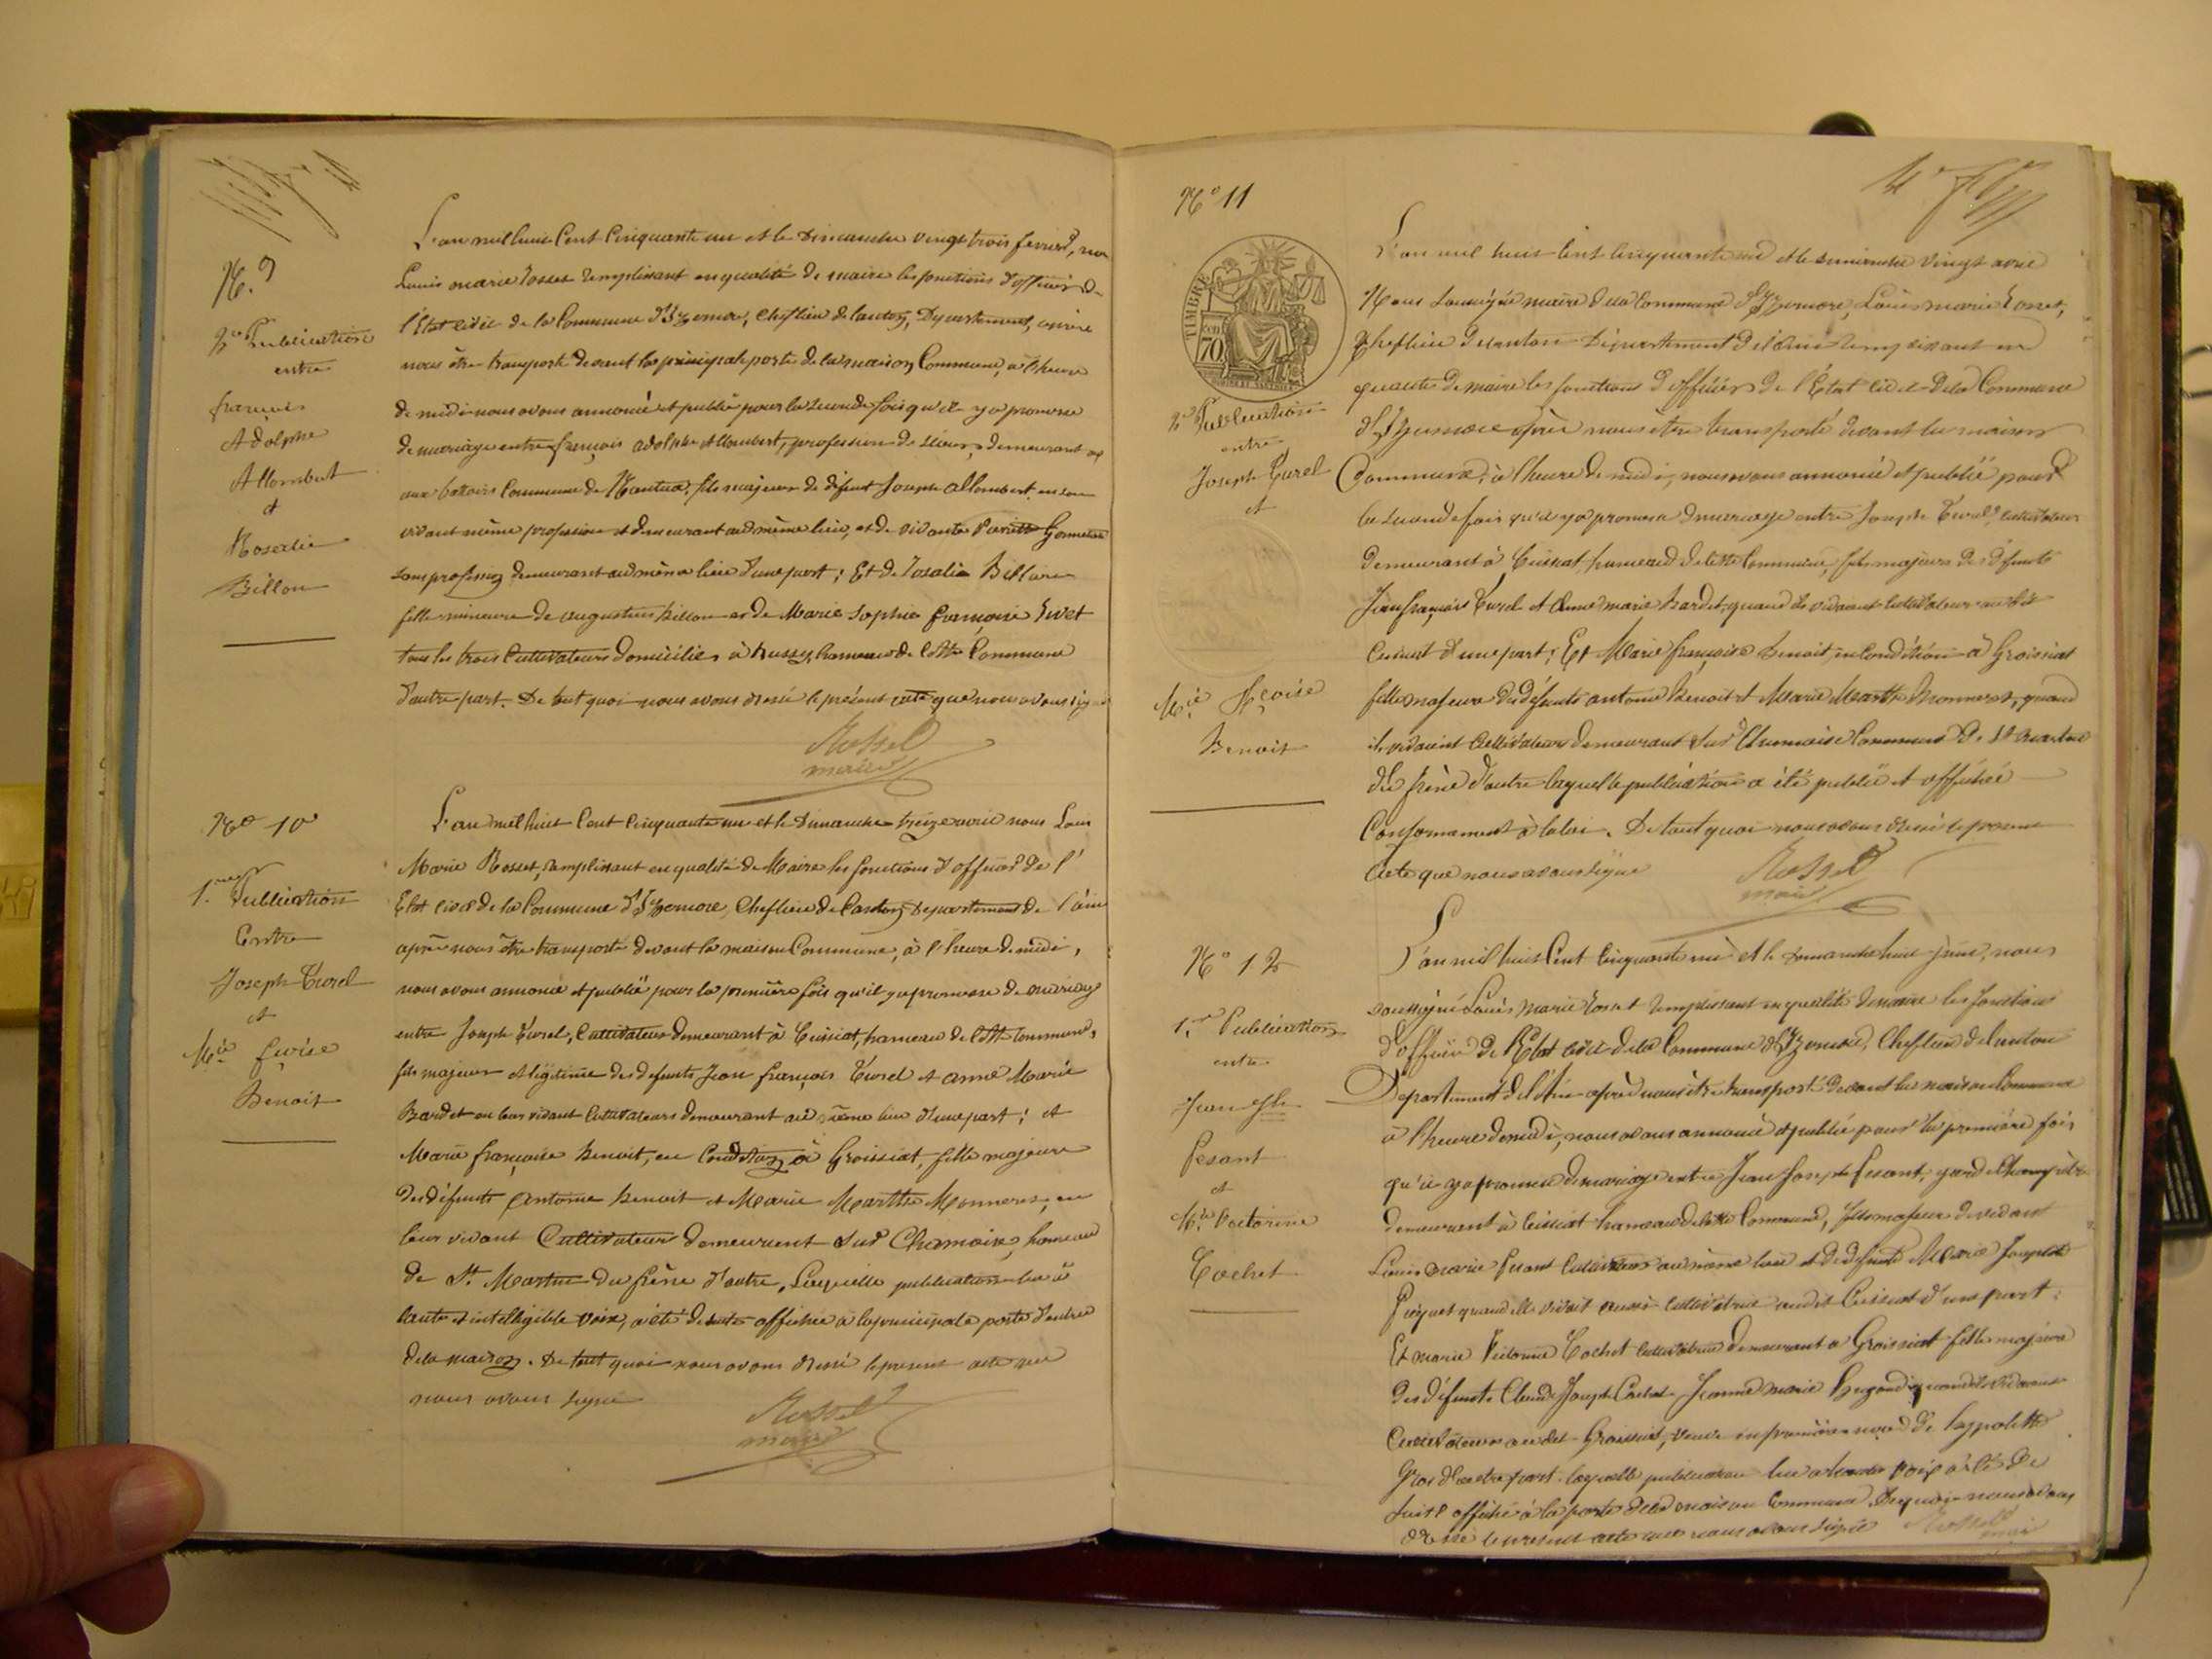 N.° 9
2.e Publication
entre
françois
Adolphe
Allombert
et
Rosalie
Billon
L'an mil huit Cent Cinquante un et le Dimanche vingt trois fevrier, nous
Louis marie Rosset remplissant en qualité de maire les fonctions d'officier de
l'Etat Civil de la Commune d'Izernore, Cheflieu de Canton, Departement, après
nous être transporté devant la principale porte de la maison Commune, à l'heure
de midi nous avons annoncé et publié pour la seconde fois qu'il y a promesse
de mariage entre françois adolphe Allombert, profession de scieur, demeurant
aux battoirs Commune de Nantua, fils majeur de défunt Joseph allombert en son
vivant même profession et demeurant au même lieu, et de vivante
sans profession demeurant au même lieu d'une part; Et de Rosalie Billon
fille mineure de augustin billon et de Marie Sophie françoise
tous les trois Cultivateurs domiciliés à bussy, hameau de Cette Commune
d'autre part. De tout quoi nous avons dressé le présent acte que nous avons signé
Rosset
maire
N° 10
1.re Publication
Entre
Joseph Turel
et
M.ie fçoise
Benoit
L'an mil huit Cent Cinquante un et le Dimanche treize avril nous Louis
Marie Rosset, remplissant en qualité de Maire les fonctions d'officier de l'
Etat civil de la Commune d'Izernore, Cheflieu de Canton, Departement de l'ain
après nous être transporté devant la maison Commune, à l'heure de midi,
nous avons annoncé et publié pour la première fois qu'il y a promesse de mariage
entre Joseph Turel, Cultivateur demeurant à Ceissiat, hameau de Cette Commune,
fils majeur et légitime des defunts Jean françois Turel et anne Marie
Bardet en leur vivant Cultivateurs demeurant au même lieu d'une part; et
Marie françoise Benoit, en Condition à Groissiat, fille majeure
des défunts Antoine Benoit et Marie Marthe Monneret, en
leur vivant Cultivateur demeurant Sur Chamoise, hameau
de St. Martin du frêne d'autre, Laquelle publication lue à
haute et intelligible voix, a été de suite affichée à la principale porte d'entrée
de la maison. De tout quoi nous avons dressé le present acte que
nous avons signé
Rosset
maire
N° 11
TIMBRE
70
2.e Publication
entre
Joseph Turel
et
M.ie fçoise
Benoit
L'an mil huit Cent Cinquante un et le dimanche vingt avril
Nous Soussigné maire de la Commune d'Izernore, Louis marie Rosset,
Cheflieu de canton Département de l'ain remplissant en
qualité de maire les fonctions d'officier de l'État Civil de la Commune
d'Izernore après nous être transporté devant la maison
Commune, à l'heure de midi, nous avons annoncé et publié pour
la seconde fois qu'il y a promesse de mariage entre Joseph Turel, cultivateur
demeurant à Ceissiat, hameau de Cette Commune, fils majeur des défunts
Jean françois Turel et Anne marie Bardet, quand ils vivaient Cultivateurs audit
Ceissiat d'une part; Et Marie françoise Benoit, en Condition à Groissiat
fille majeure des défunts antoine Benoit et Marie Marthe Monneret, quand
ils vivaient Cultivateurs demeurant Sur Chamoise Commune de St martin
du frêne d'autre laquelle publication a été publié et affichée
Conformement à la loi. De tout quoi nous avons dressé le present
acte que nous avons signé
Rosset
maire
N° 12
1.re Publication
entre
Jean Jh
fesant
et
M.ie Victorine
Cochet
L'an mil huit Cent Cinquante un et le dimanche huit juin, nous
soussigné Louis Marie Rosset remplissant en qualité de maire les fonctions
d'officier de l'Etat Civil de la Commune d'Izernore, Cheflieu de Canton
Departement de l'Ain après nous être transporté devant la maison Commune
à l'heure de midi, nous avons annoncé et publié pour la première fois
qu'il y a promesse de mariage entre Jean Joseph fesant, garde Champêtre
demeurant à Ceissiat hameau de Cette Commune, fils majeur de vivant
Louis Marie fesant Cultivateur au même lieu et de défunte Marie Josephte
quand elle vivait aussi Cultivatrice audit Ceissiat d'une part:
Et marie Victorine Cochet cultivatrice demeurant à Groissiat fille majeure
des défunts Claude Joseph Cochet Jeanne marie quand ils vivaient
Cultivateurs audit Groissiat, veuve en première noce de hyppolitte
Gros d'autre part. laquelle publication lue à haute voix a été de
suite affiché à la porte de la maison Commune. De quoi nous avons
dressé le present acte que nous avons signé Rosset
maire